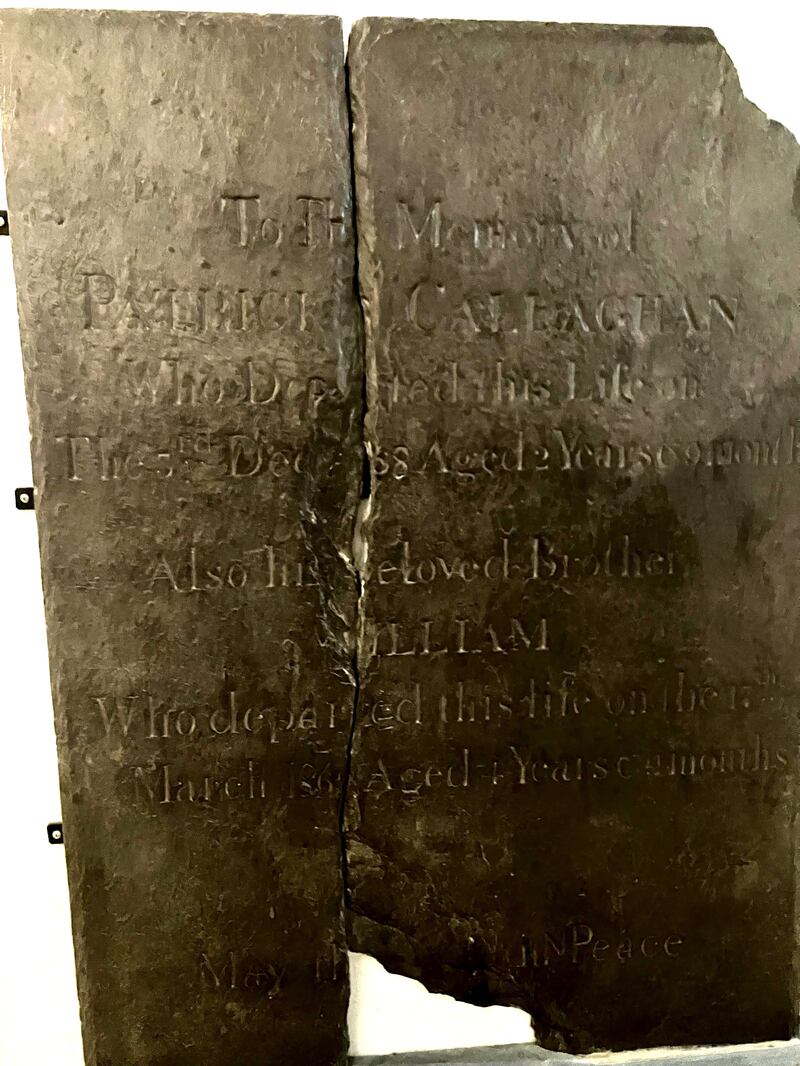 To Th Memory of
PATRICK CALLAGHAN
Who Dep rted this Life on
The Dec 88 Aged 2 Years & 9 month
Also his eloved Brother
ILLIAM
Who departed this life on the 17th
March 186 Aged 4 Years & 2 months
May th IN Peace